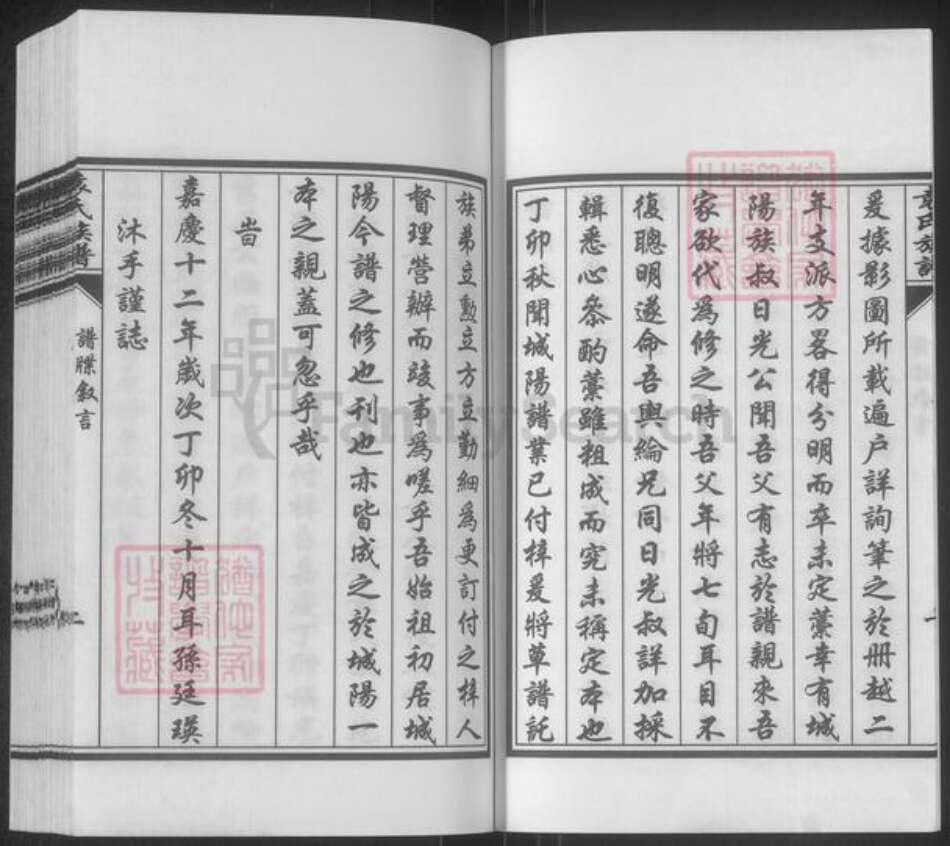 爰據影圖所載遍户詳詢筆之於册越二
年支派方畧得分明而卒未定藁幸有城
陽族叔日光公聞吾父有志於譜親來吾
家欲代爲修之時吾父年將七旬耳目不
復聰明遂命吾與綸兄同日光叔詳加採
輯悉心叅酌藁雖粗成而究未稱定本也
丁卯秋聞城陽譜業已付梓爰將草譜託
族弟立勲立方立勤細爲更訂付之梓人
督理營辦而竣事焉嗟乎吾始祖初居城
陽今譜之修也刊也亦皆成之於城陽一
本之親蓋可忽乎哉
旹
嘉慶十二年歲次丁卯冬十月耳孫廷瑛
沐手謹誌
氏族譜
譜牒叙言
二
FamilySearch